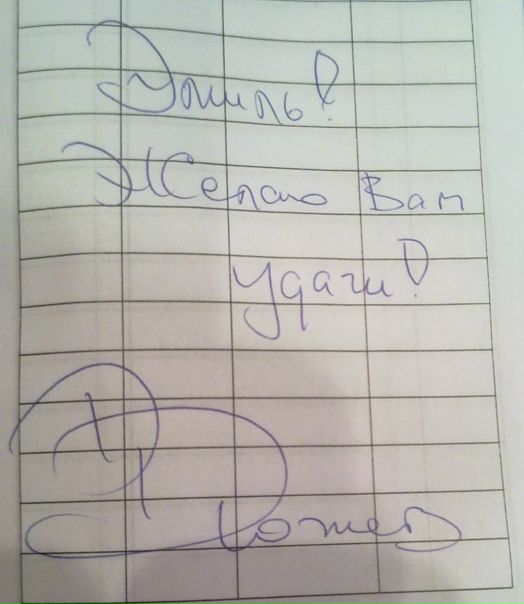 Эмиль!
Желаю Вам
удачи!